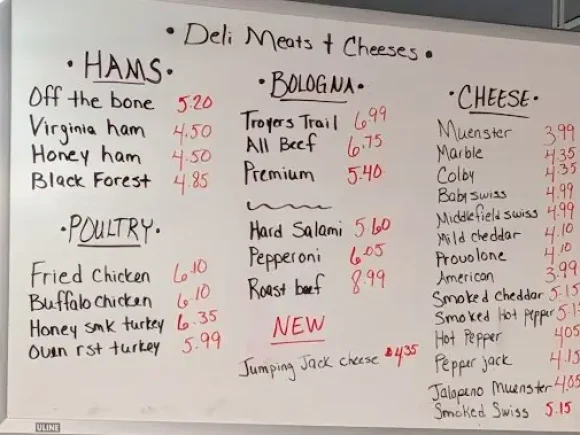 • Deli Meats + Cheeses •
• HAMS •
Off the bone 5.20
Virginia ham 4.50
Honey ham 4.50
Black Forest 4.85
• POULTRY •
Fried Chicken 6.10
Buffalo chicken 6.10
Honey smk turkey 6.35
Oven rst turkey 5.99
• BOLOGNA •
Troyers Trail 6.99
All Beef 6.75
Premium 5.40
Hard Salami 5.60
Pepperoni 6.05
Roast beef 8.99
NEW
Jumping Jack cheese $4.35
• CHEESE •
Muenster 3.99
Marble 4.35
Colby 4.35
Baby swiss 4.99
Middlefield swiss 4.99
Mild cheddar 4.10
Provolone 4.10
American 3.99
Smoked cheddar 5.15
Smoked Hot Pepper 5.1
Hot Pepper 4.05
Pepper jack 4.15
Jalapeno Muenster 4.05
Smoked Swiss 5.15
ULINE